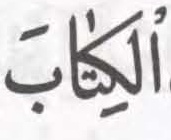 ٱلكِتٰابَ